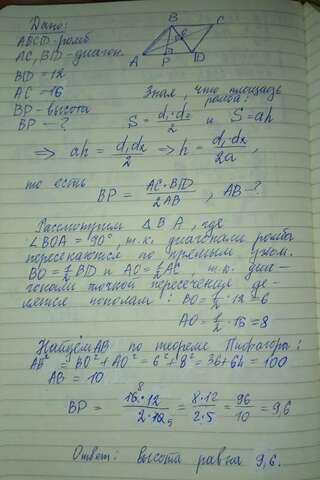 Дано:
ABCD-ромб
AC, BD-диагон.
BD=12
AC=16
BP-высота
BP-?
B C
A P D
Зная, что площадь ромба:
S = d₁·d₂/2 и S=ah
⇒ ah = d₁d₂/2 ⇒ h = d₁·d₂/2a,
то есть
BP = AC·BD/2AB, AB-?
Рассмотрим △B A, где
∠BOA = 90°, т.к. диагонали ромба
пересекаются по прямым углом.
BO=½BD и AO=½AC, т.к. диа-
гонали точкой пересечения де-
лятся пополам: BO=½·12=6
AO=½·16=8
Найдём AB по теореме Пифагора:
AB²=BO²+AO²=6²+8²=36+64=100
AB=10
BP = 16⁸·12/2·10₅ = 8·12/2·5 = 96/10 = 9,6
Ответ: высота равна 9,6.